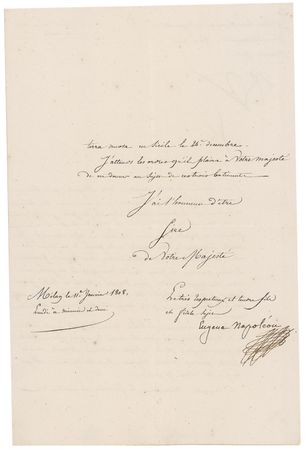 terra nuova en Sicile le 26 decembre.
J'attens les ordres qu'il plaira à Votre Majesté
de me donner au sujet de
J'ai l'honneur d'être
Sire
de Votre Majesté
Milan le 11 Janvier 1808.
Lundi à minuit et demi
Le très respectueux et tendre fils
et fidèle sujet
Eugene Napoléon